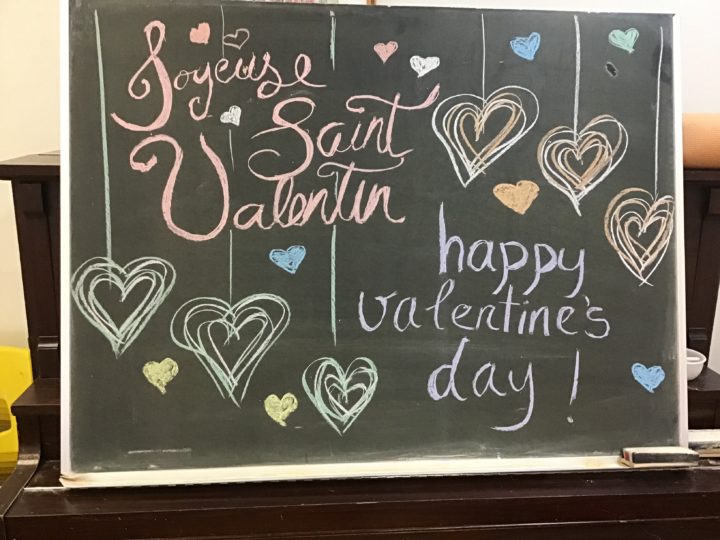 Joyeuse
Saint
Valentin
happy
valentine's
day!